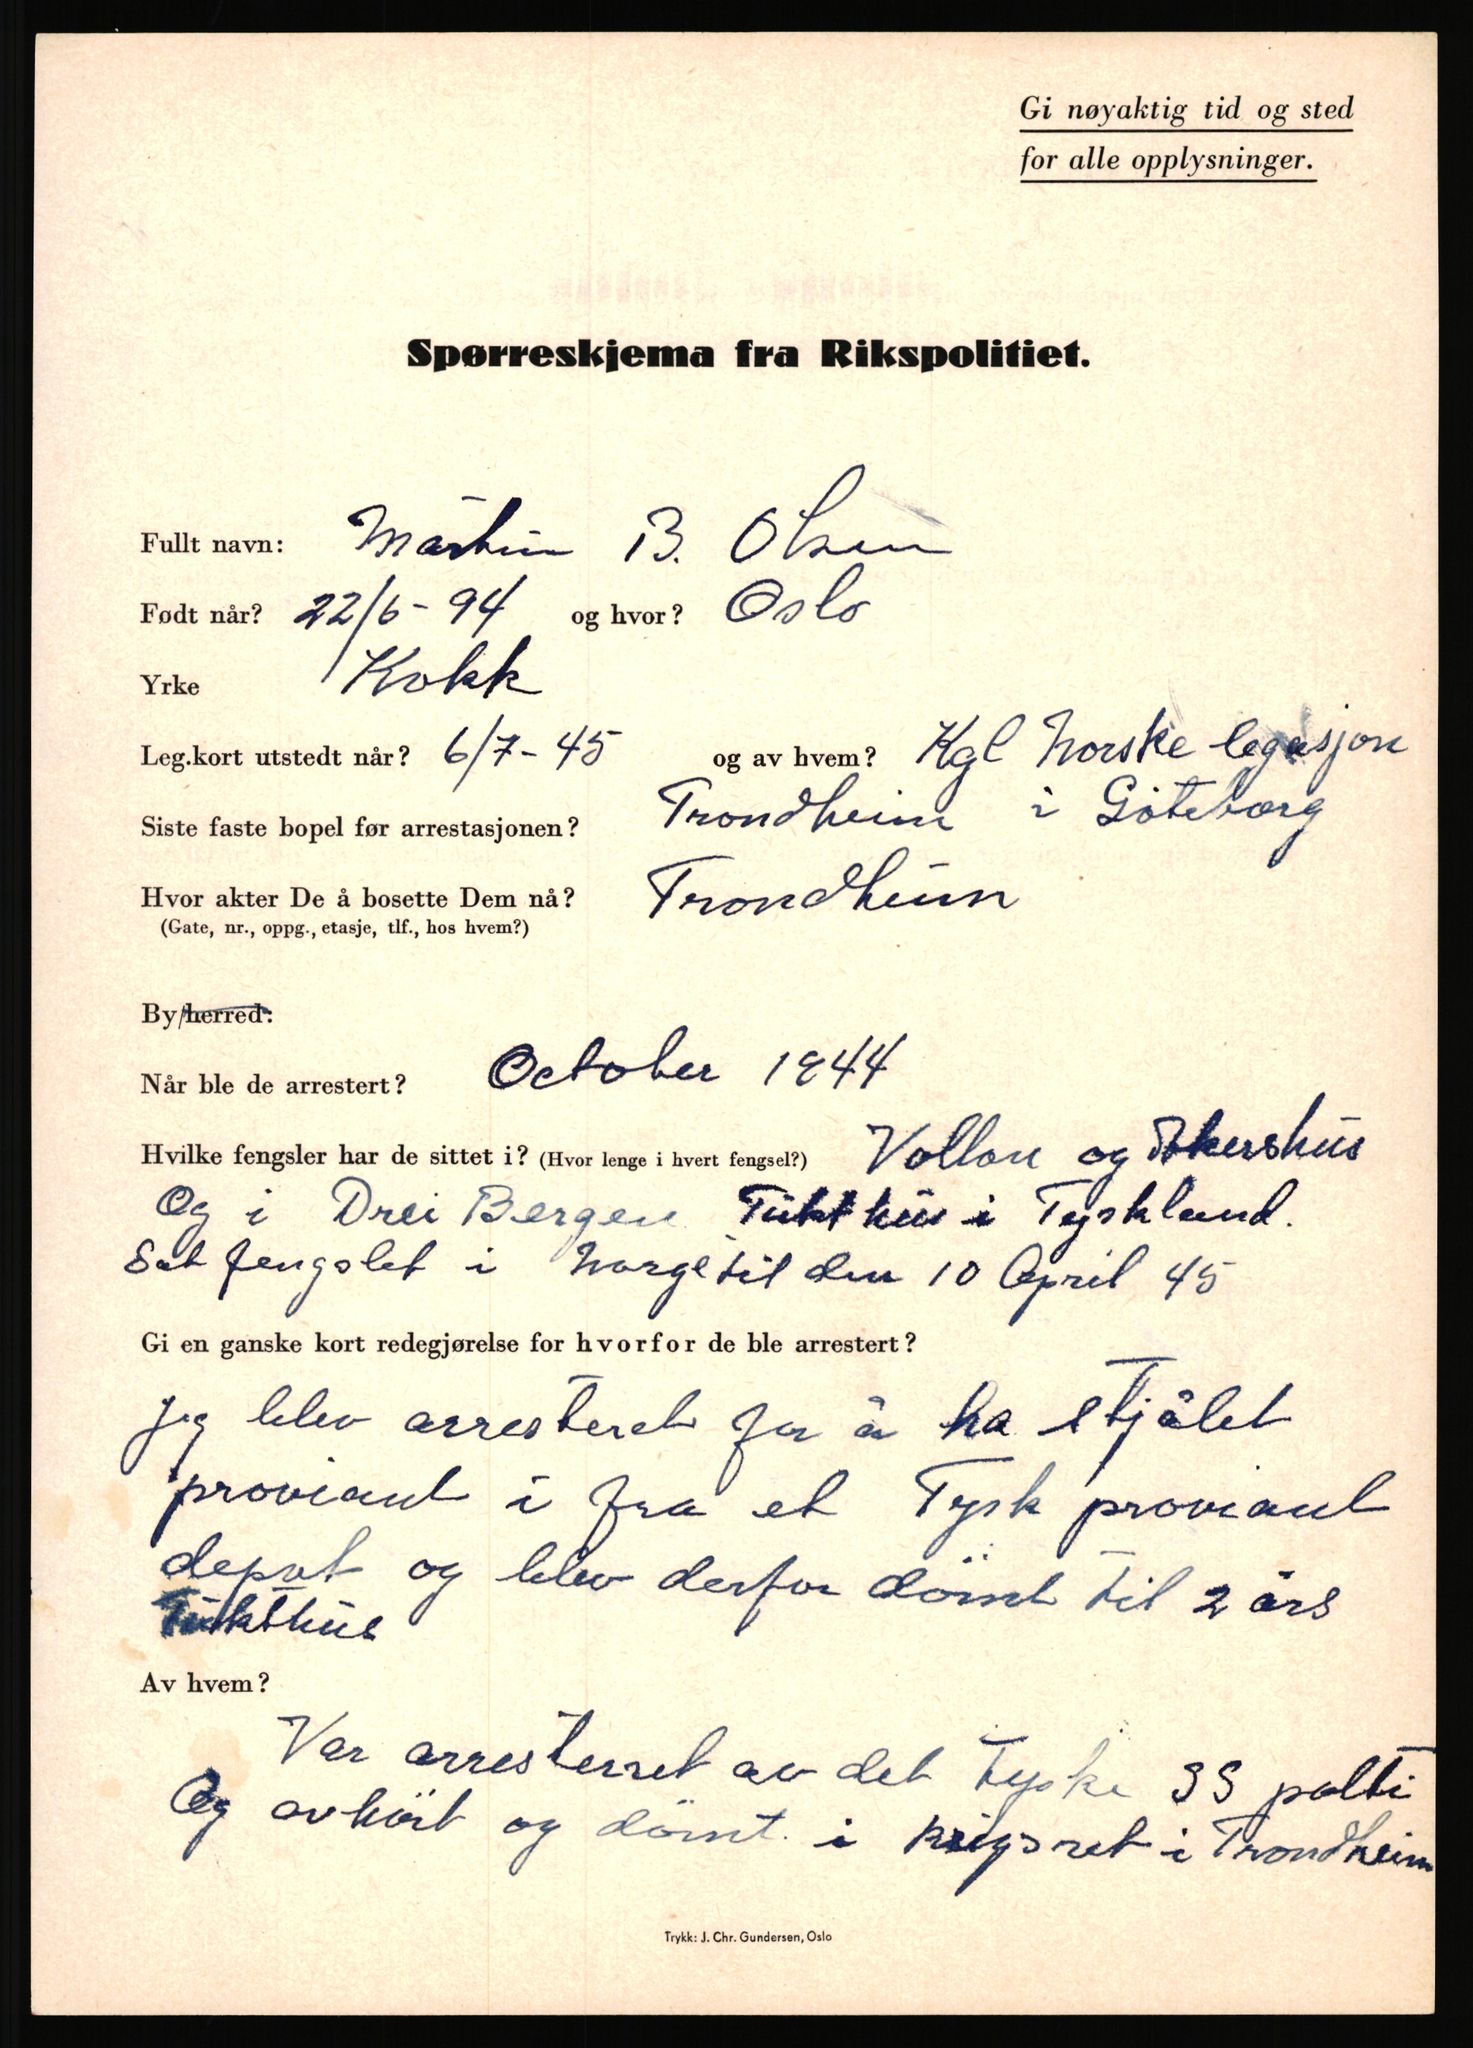 Gi nøyaktig tid og sted
for alle opplysninger.
Spørreskjema fra Rikspolitiet.
Fullt navn: Martin B. Olsen
Født når? 22/6-94 og hvor? Oslo
Yrke Kokk
Leg.kort utstedt når? 6/7-45 og av hvem? Kgl Norske legasjon
i Göteborg
Siste faste bopel før arrestasjonen? Trondheim
Hvor akter De å bosette Dem nå? Trondheim
(Gate, nr., oppg., etasje, tlf., hos hvem?)
By/herred:
Når ble de arrestert? October 1944
Hvilke fengsler har de sittet i? (Hvor lenge i hvert fengsel?) Vollan og Akershus
Og i Drei Bergen Tukthus i Tyskland.
Sat fengslet i Norge til den 10 April 45
Gi en ganske kort redegjørelse for hvorfor de ble arrestert?
Jeg blev arresteret for å ha stjålet
proviant i fra et Tysk proviant
depot og blev derfor dömt til 2 års
Tukthus
Av hvem?
Var arresterret av det Tyske SS politi
Og avhört og dömt. i krigsret i Trondheim
Trykk: J. Chr. Gundersen, Oslo